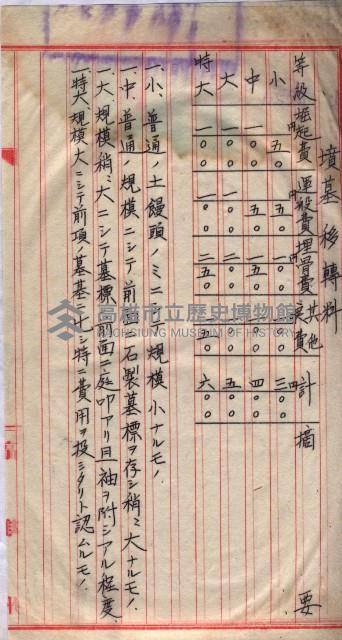 墳墓移轉料
等級 掘起費 運搬費 埋骨費 其他実費 計 摘要
小 五〇 一〇 三〇〇
中 一〇〇 五〇 一五〇 四〇〇
大 一〇〇 一〇〇 二〇〇 五〇〇
特大 一〇〇 一〇〇 二五〇 六〇〇
一、小、普通ノ土饅頭ノミニ 規模小ナルモノ、
一、中、普通ノ規模ニシテ前 石製墓標ヲ存シ稍〻大ナルモノ、
一、大、規模稍〻大ニシテ墓標前面ニ庭叩アリ且袖ヲ附シアル程度、
一、特大、規模大ニシテ前項墓碁ニ比シ特ニ費用ヲ投ジタリト認ムルモノ、
高雄市立歷史博物館
KAOHSIUNG MUSEUM OF HISTORY